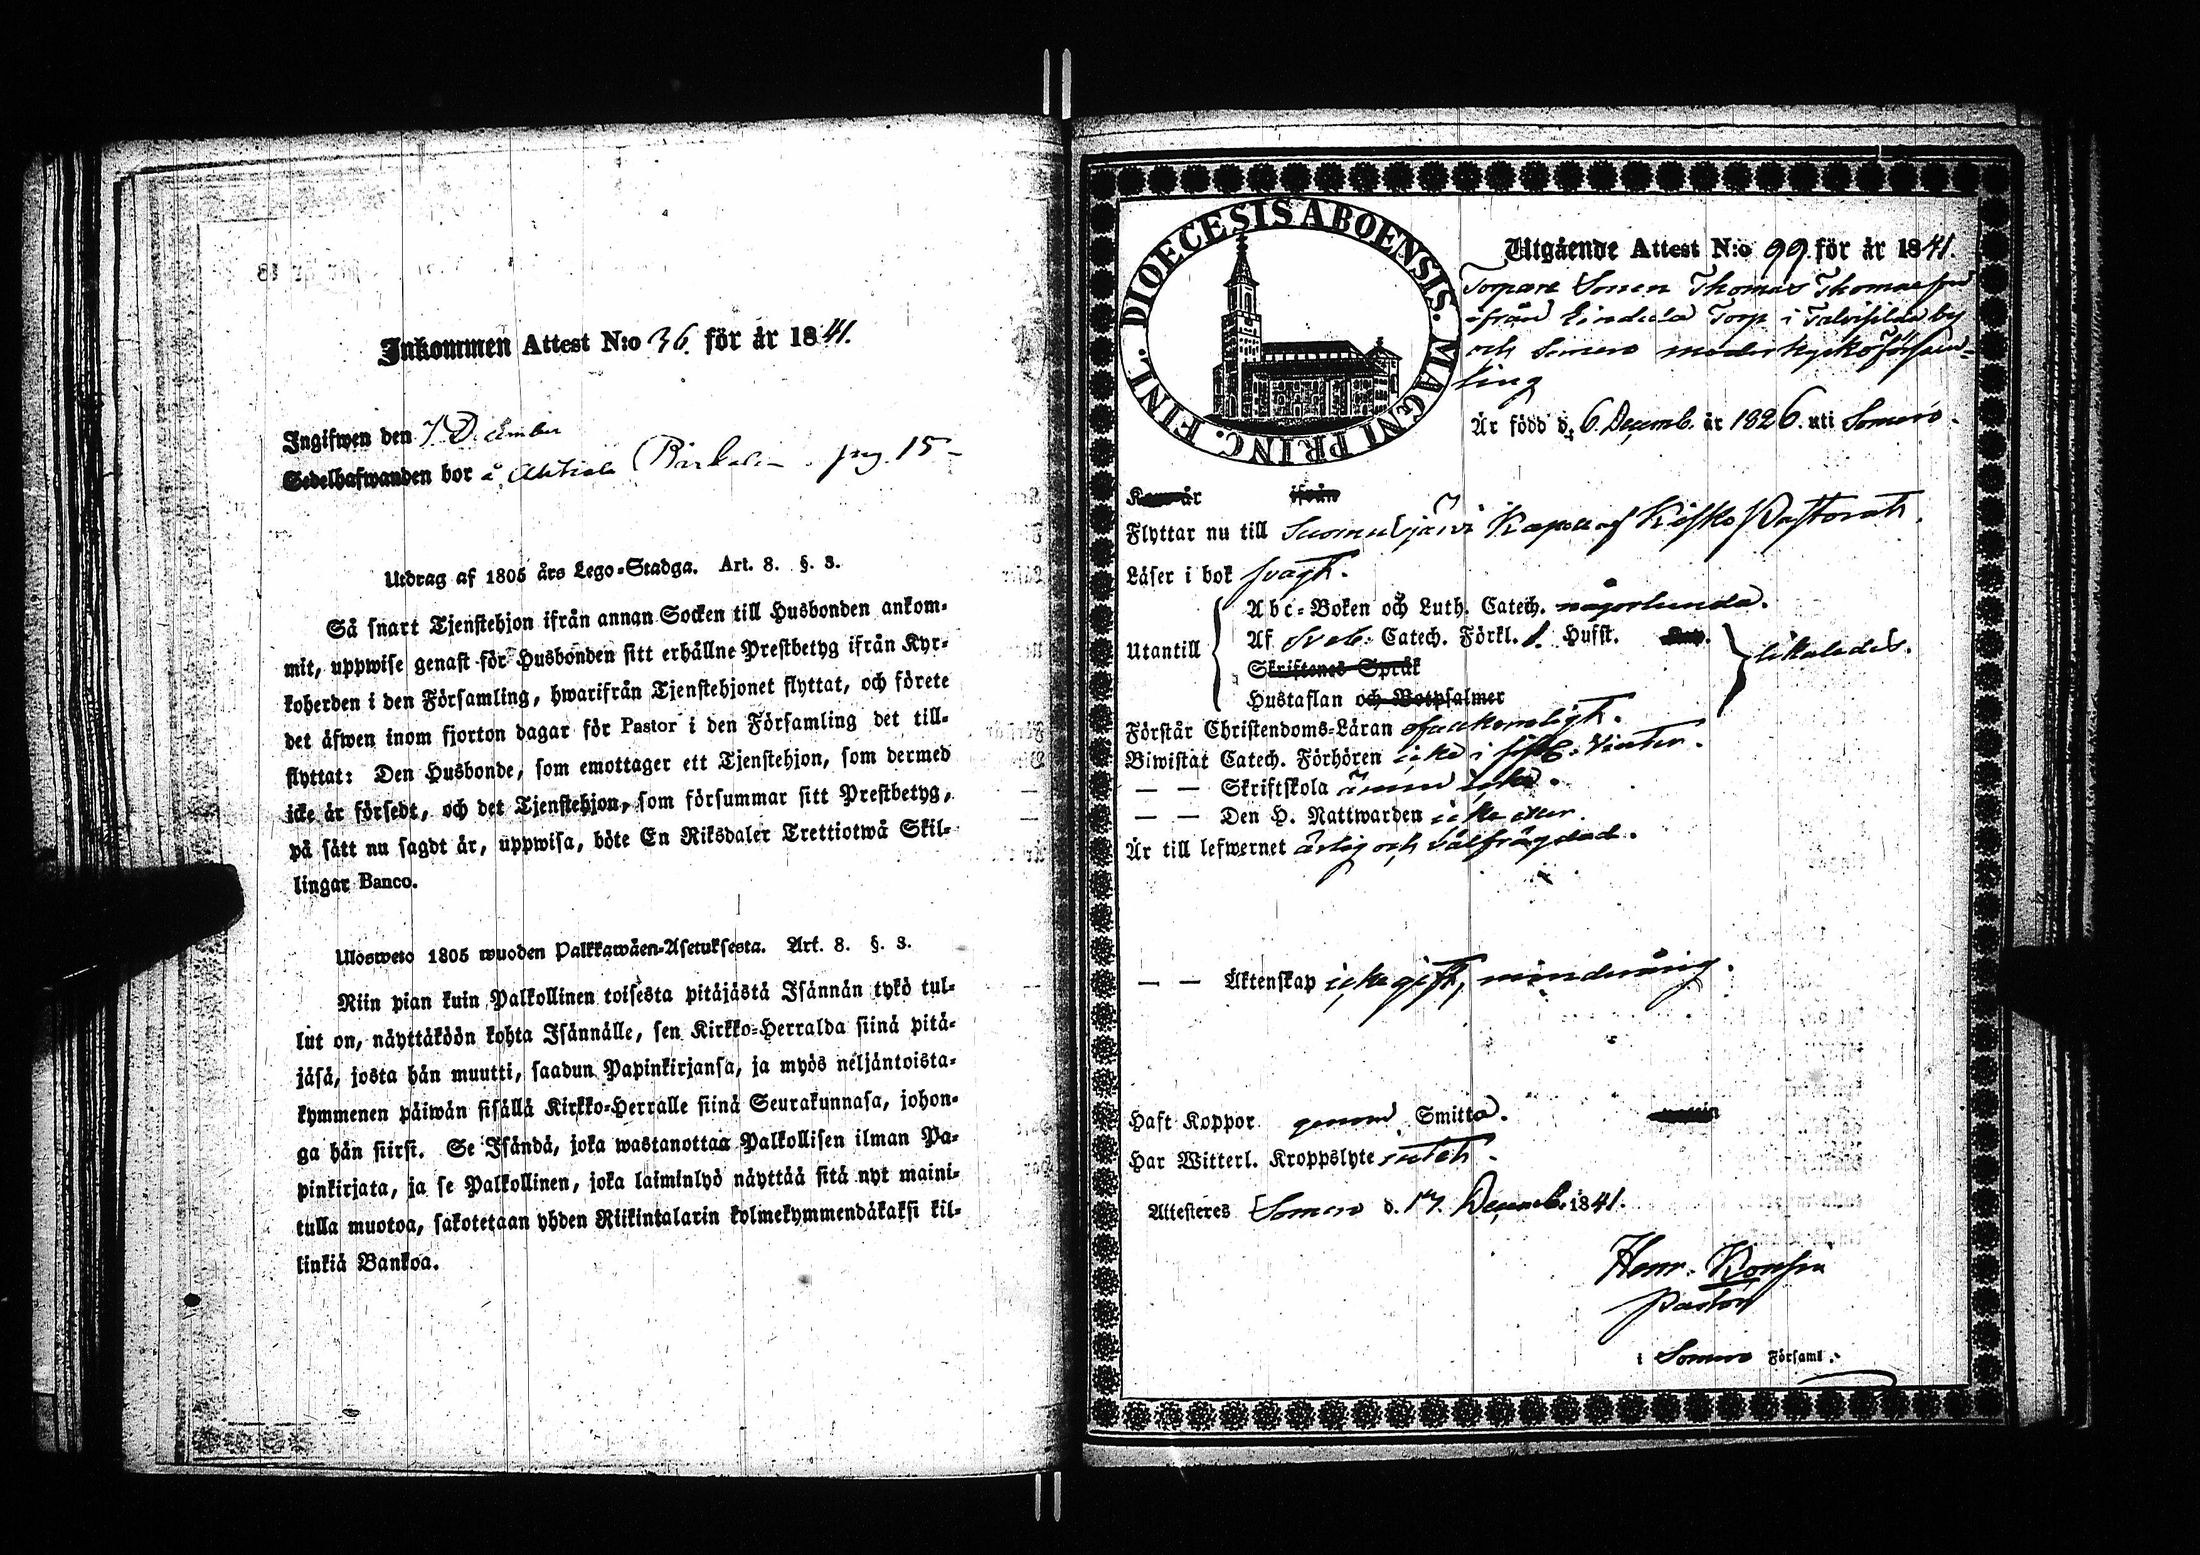 Inkommen Attest N:o 36. för år 1841.
Ingifwen den December
Sedelhafwanden bor å pag. 15
Utdrag af 1805 års Lego-Stadga. Art. 8. §. 3.
Så snart Tjenstehjon ifrån annan Socken till Husbonden ankom-
mit, uppwise genast för Husbonden sitt erhållne Prestbetyg ifrån Kyr-
koherden i den Församling, hwarifrån Tjenstehjonet flyttat, och förete
det äfwen inom fjorton dagar för Pastor i den Församling det till-
flyttat: Den Husbonde, som emottager ett Tjenstehjon, som dermed
icke är försedt, och det Tjenstehjon, som försummar sitt Prestbetyg,
på sätt nu sagdt är, uppwisa, böte En Riksdaler Trettiotwå Skil-
lingar Banco.
Ulosweto 1805 wuoden Palkkawäen-Asetuksesta. Art. 8. §. 3.
Niin pian kuin Palkollinen toisesta pitäjästä Isännän tykö tul-
lut on, näyttäköön kohta Isännälle, sen Kirkko-Herralda siinä pitä-
jäsä, josta hän muutti, saadun Papinkirjansa, ja myös neljäntoista-
kymmenen päiwän sisällä Kirkko-Herralle siinä Seurakunnasa, johon-
ga hän siirsi. Se Isändä, joka wastanottaa Palkollisen ilman Pa-
pinkirjata, ja se Palkollinen, joka laiminlyö näyttää sitä nyt maini-
tulla muotoa, sakotetaan yhden Riikintalarin kolmekymmendäkaksi kil-
linkiä Bankoa.
DIOECESIS ABOENSIS. MAGNI PRINC. FINL.
Utgående Attest N:o 99. för år 1841.
Torpare Sonen Thomas Thomasson
ifrån Torp i by
och Somero moderkyrkoförsam-
ling
Är född d. 6 Decemb. år 1826. uti Somero.
är ifrån
Flyttar nu till Suomusjärvi Kapell af Kisko Pastorat.
Läser i bok svagt.
Utantill
Abc-Boken och Luth. Catech. någorlunda.
Af Sveb. Catech. Förkl. Husst.
Skriftenes Språk
Hustaflan och Botpsalmer
likaledes.
Förstår Christendoms-Läran ofullkomligt.
Biwistat Catech. Förhören icke i sistl. vinter.
— — Skriftskola ännu icke.
— — Den H. Nattwarden icke eller.
Är till lefwernet ärlig och välfrägdad.
— — Äktenskap icke gift, minderårig.
Haft Koppor genom Smitta.
Har Witterl. Kroppslyte intet.
Attesteres Somero d. 17 Decemb. 1841.
Henr.
Pastor
i Somero Församl.